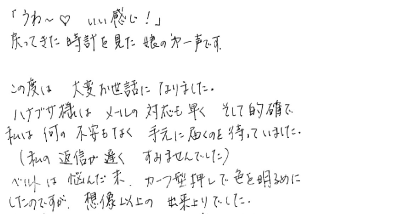 「うわ～♡ いい感じ！」
戻ってきた時計を見た娘の第一声です。
この度は 大変お世話になりました。
ハナブサ様は メールの対応も早く そして的確で
私は何の不安もなく 手元に届くのを待っていました。
（私の返信が遅く すみませんでした）
ベルトは悩んだ末、カーフ型押しで色を明るめに
したのですが、想像以上の 出来上りでした。